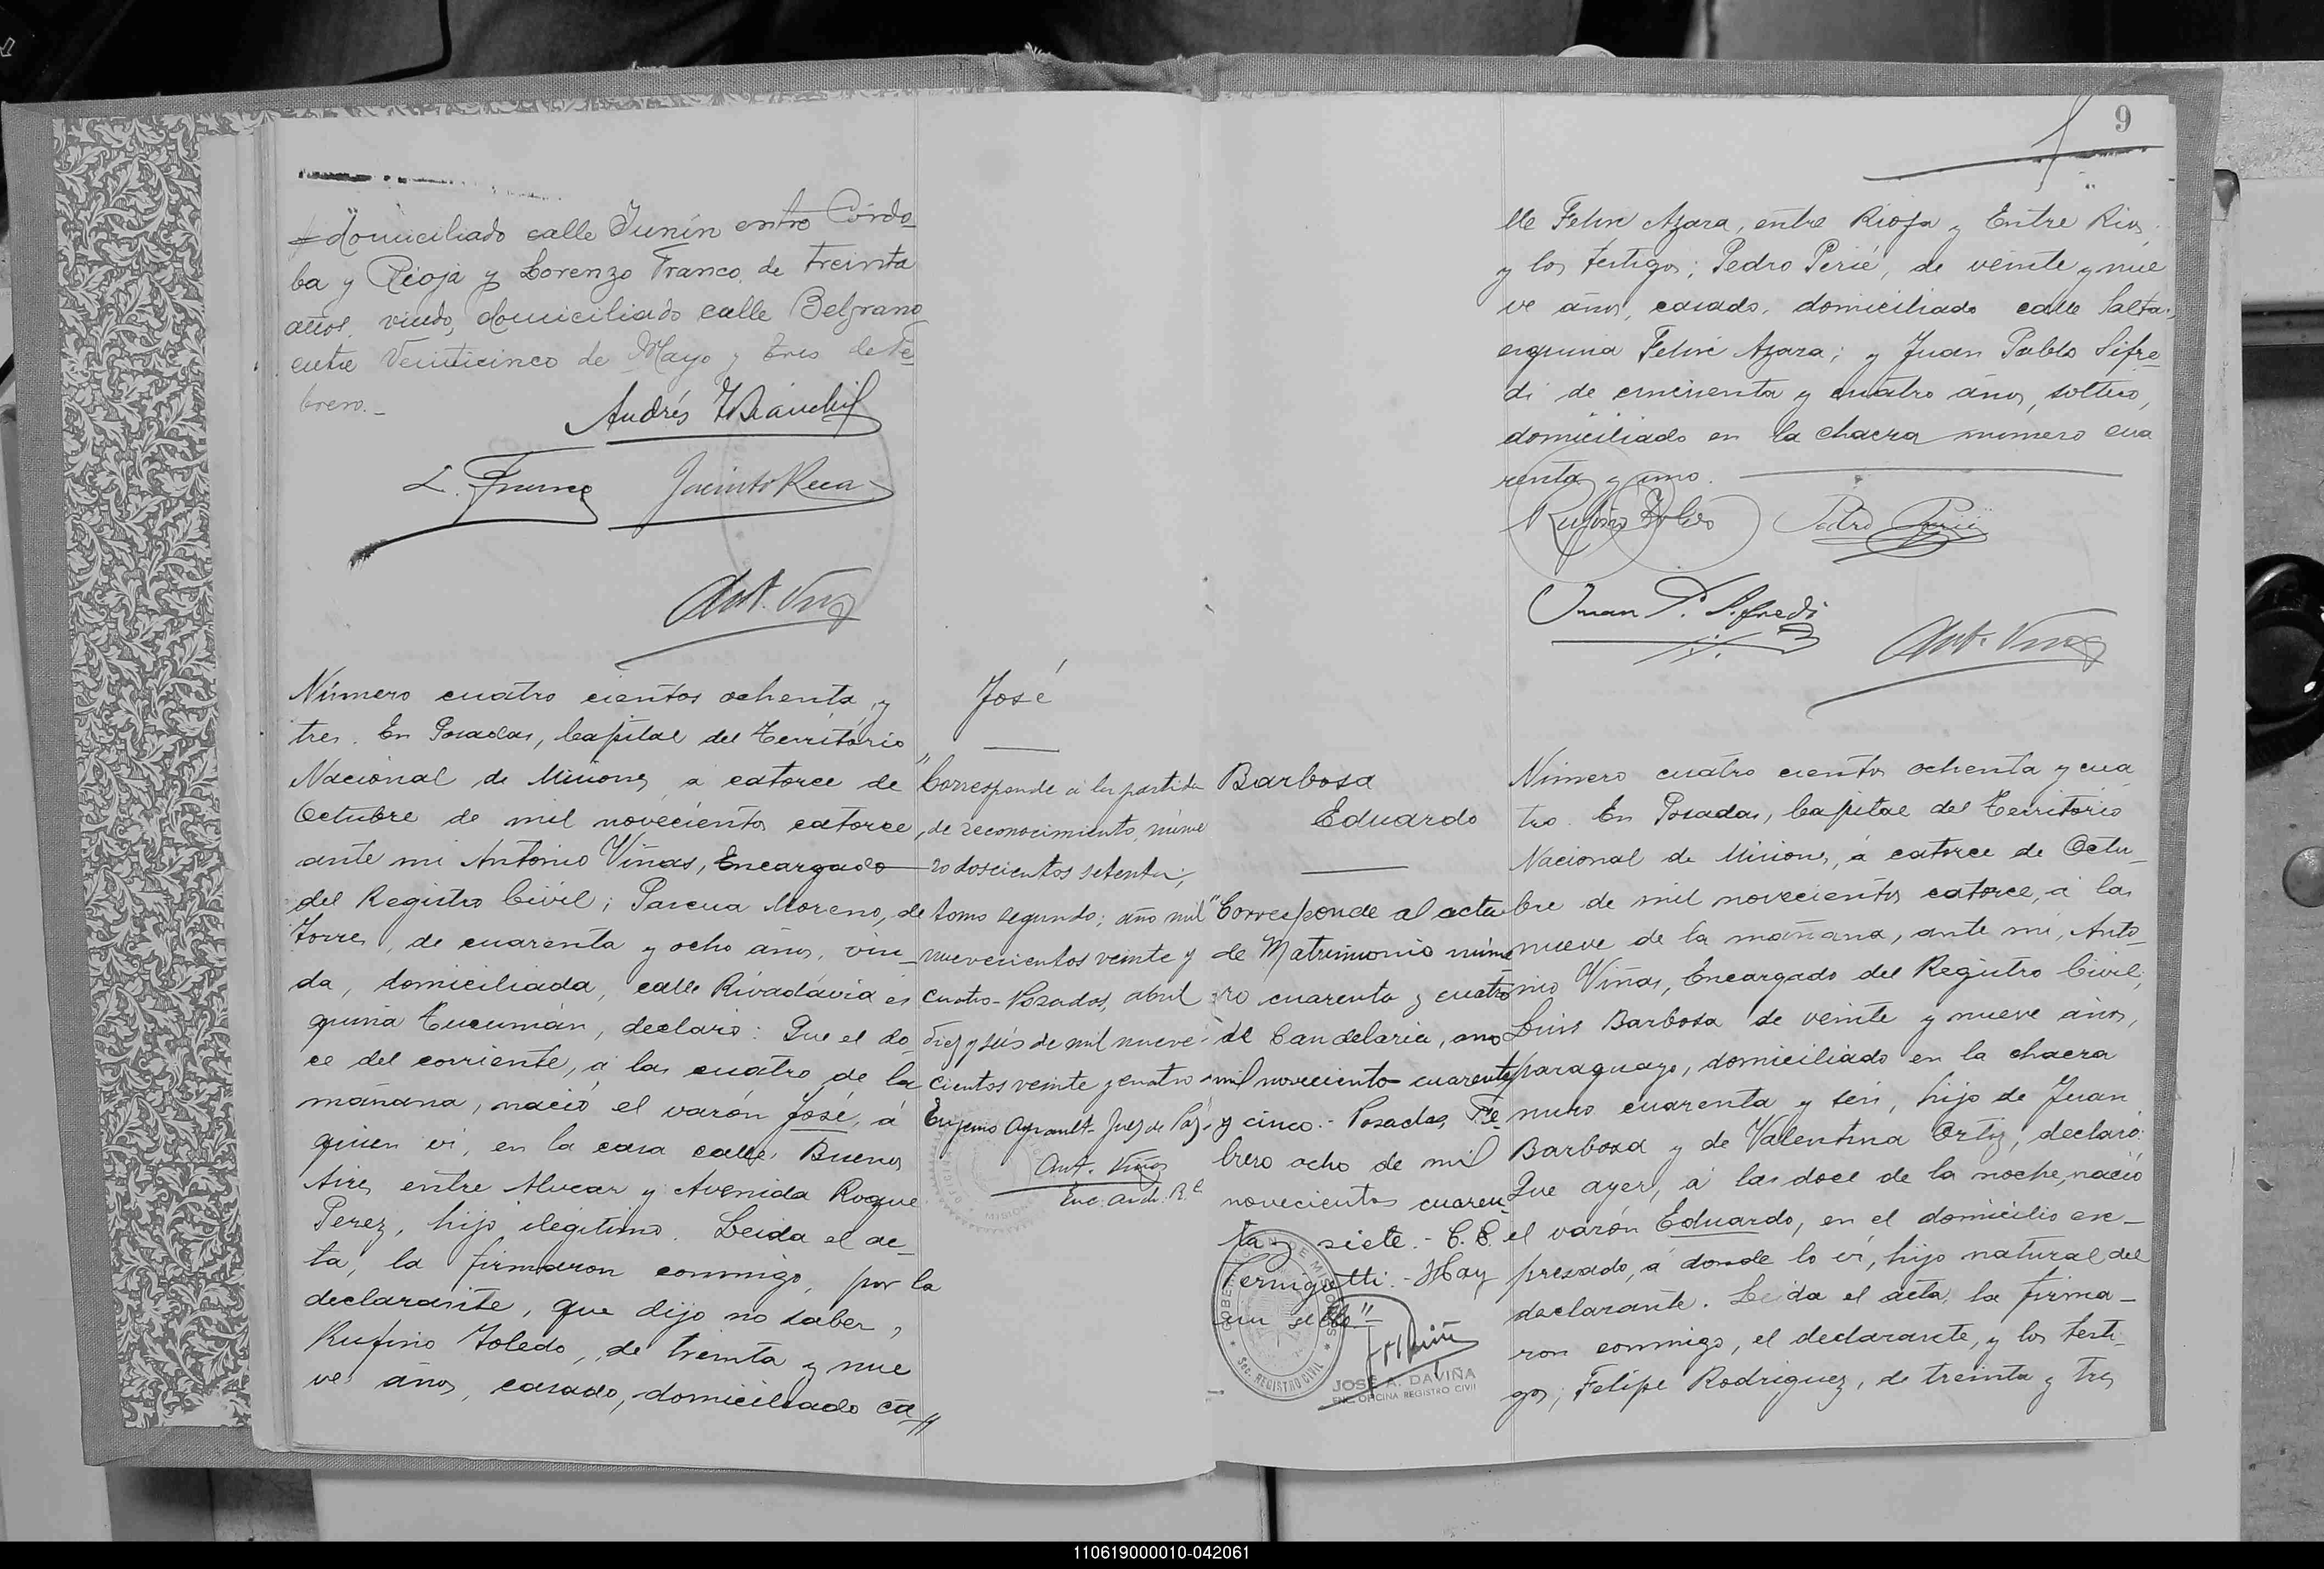 domiciliado calle Junín entre Córdo_
ba y Rioja y Lorenzo Franco, de treinta
años, viudo, domiciliado calle Belgrano
entre Veinticinco de Mayo y Tres de Fe_
brero._
Andrés
L. Franco Jacinto
Ant. Viñas
Número cuatro cientos ochenta y
tres. En Posadas, Capital del Territorio
Nacional de Misiones, a catorce de
Octubre de mil novecientos catorce,
ante mi Antonio Viñas, Encargado
del Registro Civil; Pascua Moreno, de
Torres, de cuarenta y ocho años, viu_
da, domiciliada, calle Rivadavia es
quina Tucumán, declaró: Que el do_
ce del corriente, á las cuatro de la
mañana, nació el varón José, á
quien ví, en la casa calle, Buenos
Aires entre Alvear y Avenida Roque
Perez, hijo ilegítimo. Leída el ac_
ta, la firmaron conmigo, por la
declarante, que dijo no saber,
Rufino Toledo, de treinta y nue
ve años, casado, domiciliado ca_//
José
"Corresponde á la partida
de reconocimiento, núme
ro doscientos setenta,
tomo segundo; año mil
nuevecientos veinte y
cuatro- Posadas, abril
diez y seis de mil nueve-
cientos veinte y cuatro
Eugenio Ayrault- Juez de Paz
Ant. Viñas
Enc. Arch. R. C.
Barbosa
Eduardo
"Corresponde al acta
de Matrimonio núme
ro cuarenta y cuatro
de Candelaria, año
mil noveciento cuarenta
y cinco.- Posadas, Fe
brero ocho de mil
novecientos cuaren_
ta y siete.- C. C.
Perugetti.- Hay
un sello"
JOSÉ A. DAVIÑA
ENC. OFICINA REGISTRO CIVIL
9
lle Felix Azara, entre Rioja y Entre Rios,
y los testigos; Pedro Perié, de veinte y nue
ve años, casado, domiciliado calle Salta,
esquina Felix Azara; y Juan Pablo Sifre_
di de cincuenta y cuatro años, soltero,
domiciliado en la chacra número cua
renta y uno.
Rufino Toledo Pedro Perié
Juan P. Sifredi
Ant. Viñas
Número cuatro cientos ochenta y cua
tro. En Posadas, Capital del Territorio
Nacional de Misiones, á catorce de Octu_
bre de mil novecientos catorce, á las
nueve de la mañana, ante mi, Anto_
nio Viñas, Encargado del Registro Civil;
Luis Barbosa de veinte y nueve años,
paraguayo, domiciliado en la chacra
numro cuarenta y seis, hijo de Juan
Barbosa y de Valentina Ortiz, declaró:
Que ayer, á las doce de la noche, nació
el varón Eduardo, en el domicilio ex_
presado, á donde lo ví, hijo natural del
declarante. Leida el acta, la firma_
ron conmigo, el declarante, y los testi_
gos; Felipe Rodriguez, de treinta y tres
110619000010-042061